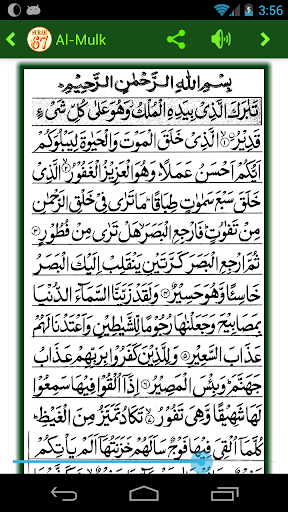 3:56
SURAH
67
Al-Mulk
بِسْمِ اللهِ الرَّحْمٰنِ الرَّحِيْمِ
تَبٰرَكَ الَّذِيْ بِيَدِهِ الْمُلْكُ وَهُوَ عَلٰى كُلِّ شَيْءٍ
قَدِيْرُ ۙ﴿١﴾ الَّذِيْ خَلَقَ الْمَوْتَ وَالْحَيٰوةَ لِيَبْلُوَكُمْ
اَيُّكُمْ اَحْسَنُ عَمَلًا ؕ وَهُوَ الْعَزِيْزُ الْغَفُوْرُ ۙ﴿٢﴾ الَّذِيْ
خَلَقَ سَبْعَ سَمٰوٰتٍ طِبَاقًا ؕ مَا تَرٰى فِيْ خَلْقِ الرَّحْمٰنِ
مِنْ تَفٰوُتٍ ؕ فَارْجِعِ الْبَصَرَ ۙ هَلْ تَرٰى مِنْ فُطُوْرٍ ﴿٣﴾
ثُمَّ ارْجِعِ الْبَصَرَ كَرَّتَيْنِ يَنْقَلِبْ اِلَيْكَ الْبَصَرُ
خَاسِئًا وَّهُوَ حَسِيْرٌ ﴿٤﴾ وَلَقَدْ زَيَّنَّا السَّمَآءَ الدُّنْيَا
بِمَصَابِيْحَ وَجَعَلْنٰهَا رُجُوْمًا لِّلشَّيٰطِيْنِ وَاَعْتَدْنَا لَهُمْ
عَذَابَ السَّعِيْرِ ﴿٥﴾ وَلِلَّذِيْنَ كَفَرُوْا بِرَبِّهِمْ عَذَابُ
جَهَنَّمَ ؕ وَبِئْسَ الْمَصِيْرُ ﴿٦﴾ اِذَآ اُلْقُوْا فِيْهَا سَمِعُوْا
لَهَا شَهِيْقًا وَّهِيَ تَفُوْرُ ۙ﴿٧﴾ تَكَادُ تَمَيَّزُ مِنَ الْغَيْظِ ؕ
كُلَّمَآ اُلْقِيَ فِيْهَا فَوْجٌ سَاَلَهُمْ خَزَنَتُهَآ اَلَمْ يَاْتِكُمْ